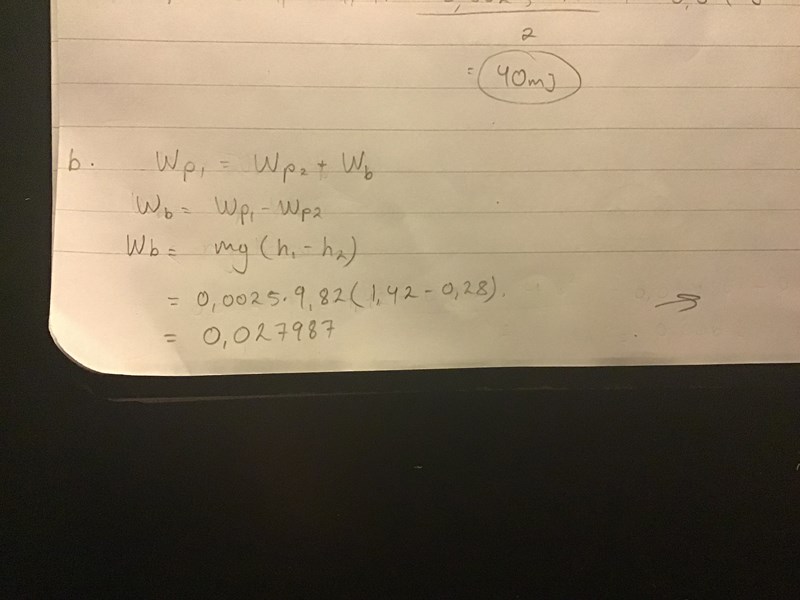 2
= 40mJ
b. Wp₁ = Wp₂ + Wb
Wb = Wp₁ - Wp2
Wb = mg (h₁ - h₂)
= 0,0025·9,82(1,42 - 0,28).
= 0,027987